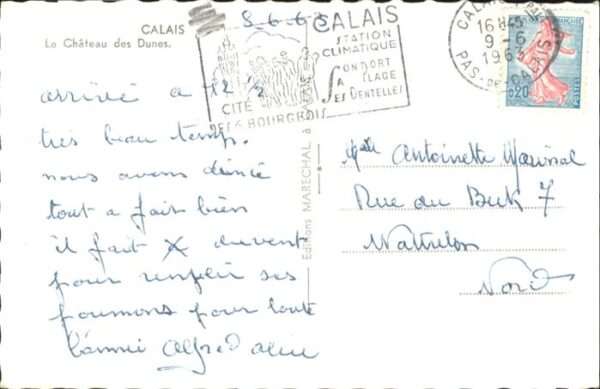 CALAIS
Le Château des Dunes.
CALAIS
STATION
CLIMATIQUE
SON PORT
SA PLAGE
SES DENTELLES
CITÉ
DES 6 BOURGEOIS
CALAIS
16H45
9-6
1963
PAS-DE-CALAIS
FRANÇAISE
0,20
POSTES
arrivé a 12 ½
très beau temp.
nous avons dinée
tout a fait bien
il fait X du vent
pour remplir ses
poumons pour toute
l'année Alfred Aline
Editions MARECHAL, à CALAIS
Antoinette
Rue du Beck 7
Wattrelos
Nord